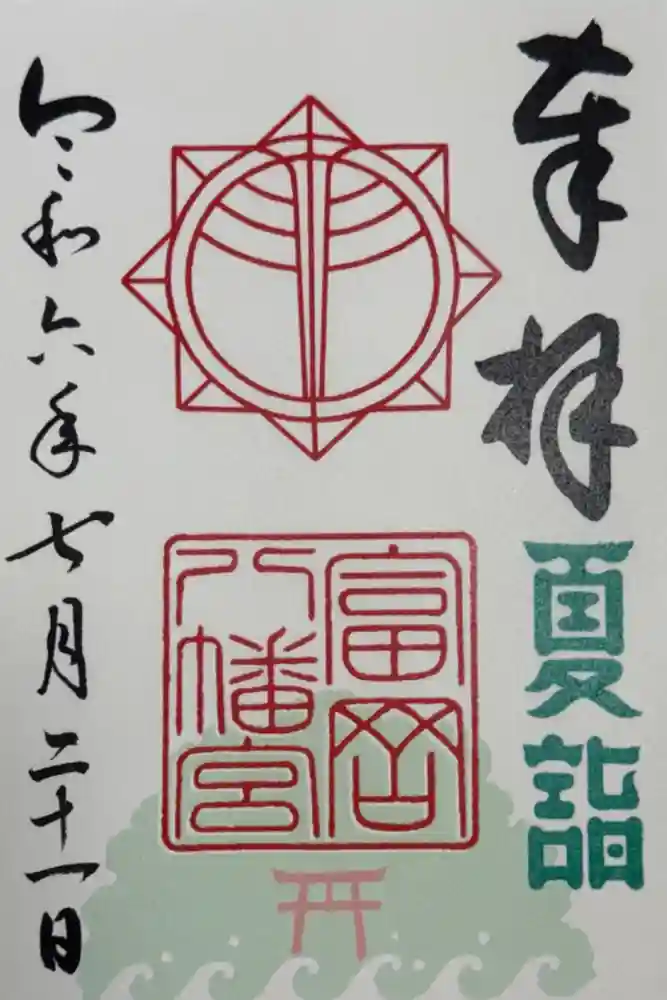 奉拝
夏詣
富岡
八幡宮
令和六年七月二十一日